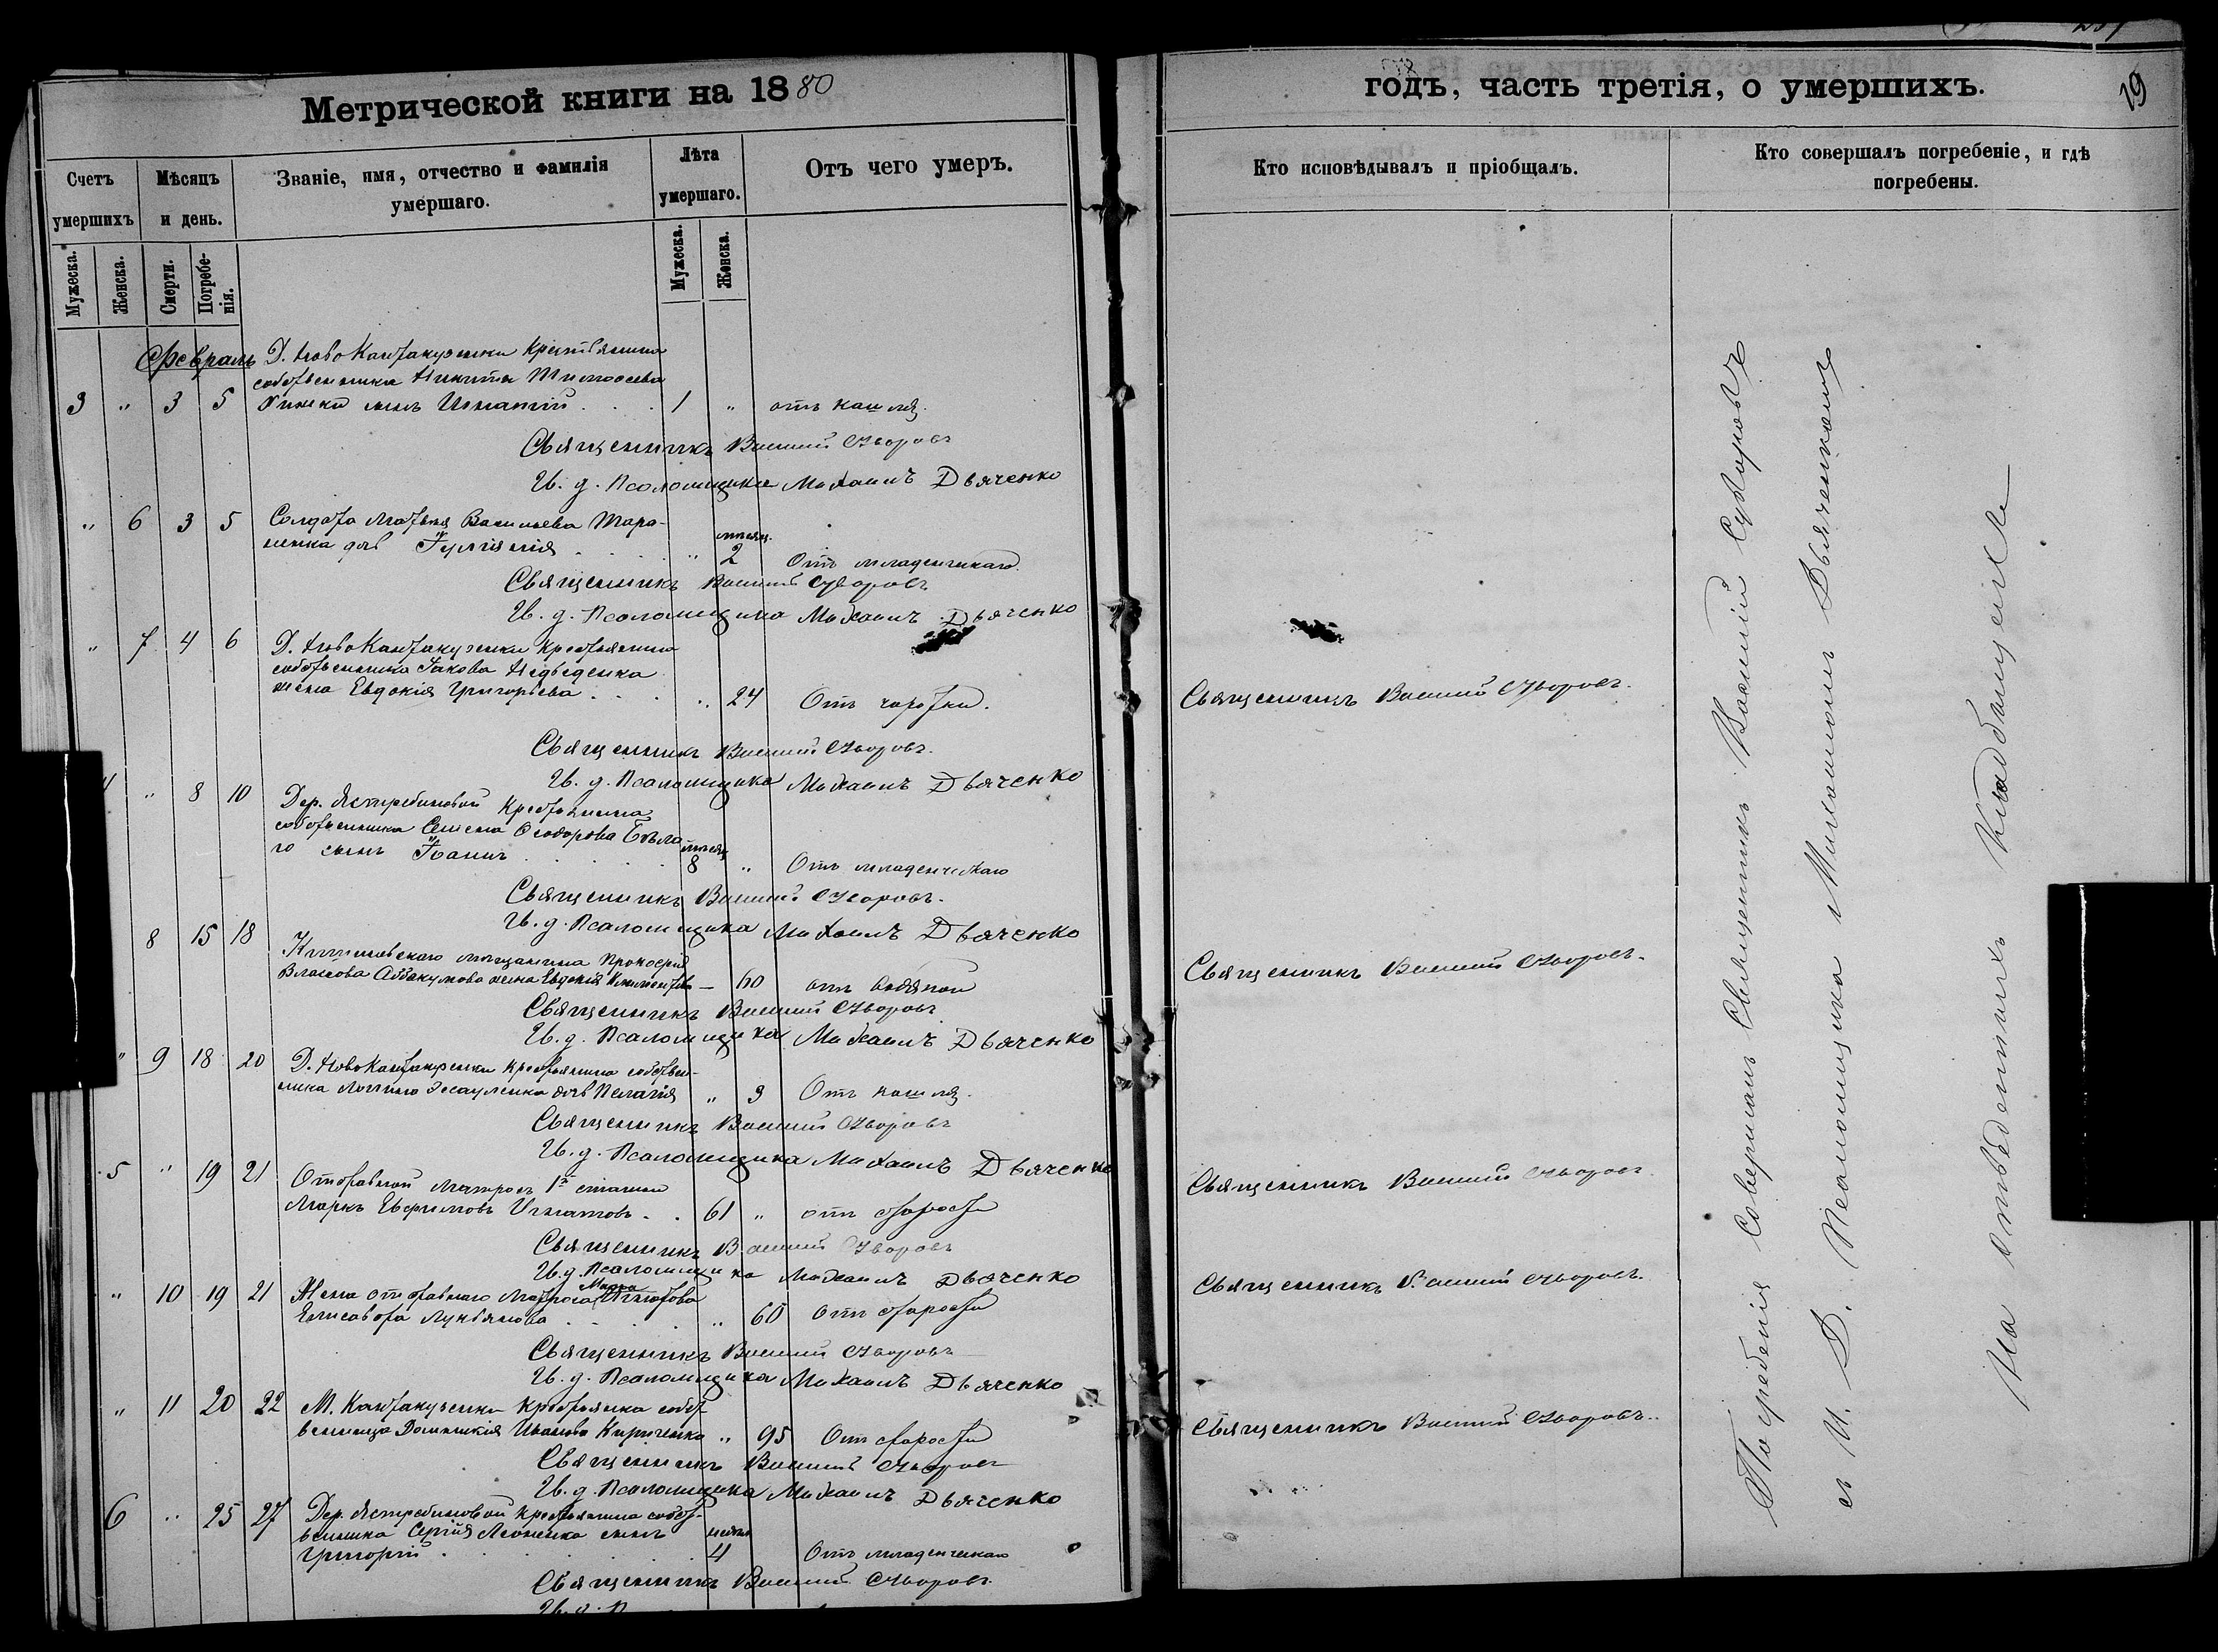 Метрической книги на 1880
Счетъ умершихъ
Мѣсяцъ и день.
Званіе, имя, отчество и фамилія умершаго.
Лѣта умершаго.
Отъ чего умеръ.
Мужеска.
Женска.
Смерти.
Погребенія.
Мужеска.
Женска.
Февраль Д. Новокантакузенки крестьянина
собственника Никиты Тимоѳеева
3 " 3 5 сынъ Игнатій . . . 1 " отъ кашля.
Священникъ Василій Суворовъ
И. д. Псаломщика Михаилъ Дьяченко
" 6 3 5 Солдата Матвея Васильева Тара-
сенка дочь . . . . " 2 Отъ младенческаго.
Священникъ Василій Суворовъ
И. д. Псаломщика Михаилъ Дьяченко
" 7 4 6 Д. Новокантакузенки крестьянина
собственника Іакова
жена Евдокія Григорьева . . . " 24 Отъ чахотки.
Священникъ Василій Суворовъ.
И. д. Псаломщика Михаилъ Дьяченко
4 " 8 10 Дер. Ястребиновой крестьянина
собственника Семена Ѳеодорова Бѣла-
го сынъ Іоаннъ . . . . . 8 " Отъ младенческаго
Священникъ Василій Суворовъ.
И. д. Псаломщика Михаилъ Дьяченко
8 15 18 мѣщанина Прокофія
Власова Аввакумова жена Евдокія — 60 отъ водяной
Священникъ Василій Суворовъ
И. д. Псаломщика Михаилъ Дьяченко
" 9 18 20 Д. Новокантакузенки крестьянина собствен-
ника Есауленка дочь Пелагія " 3 Отъ кашля.
Священникъ Василій Суворовъ
И. д. Псаломщика Михаилъ Дьяченко
5 " 19 21 Отставной матросъ 1й статьи
Маркъ Ефимовъ Игнатовъ . . 61 " отъ старости
Священникъ Василій Суворовъ
И. д. Псаломщика Михаилъ Дьяченко
" 10 19 21 Жена отставнаго матроса Марка Игнатова
Елисавета Лукьянова . . . . " 60 отъ старости
Священникъ Василій Суворовъ
И. д. Псаломщика Михаилъ Дьяченко
" 11 20 22 М. Кантакузенки крестьянка собст-
венница Домникія Иванова Кириченко " 95 Отъ старости
Священникъ Василій Суворовъ
И. д. Псаломщика Михаилъ Дьяченко
6 " 25 27 Дер. Ястребиновой крестьянина собст-
венника Сергія сынъ
Григорій . . . . . . 4 Отъ младенческаго
Священникъ Василій Суворовъ.
годъ, часть третія, о умершихъ.
19
Кто исповѣдывалъ и пріобщалъ.
Кто совершалъ погребеніе, и гдѣ погребены.
Священникъ Василій Суворовъ.
Священникъ Василій Суворовъ.
Священникъ Василій Суворовъ
Священникъ Василій Суворовъ.
Священникъ Василій Суворовъ..
Погребенія совершалъ Священникъ Василій Суворовъ
съ И. Д. Псаломщика Михаиломъ Дьяченкомъ
На отведенныхъ кладбищахъ